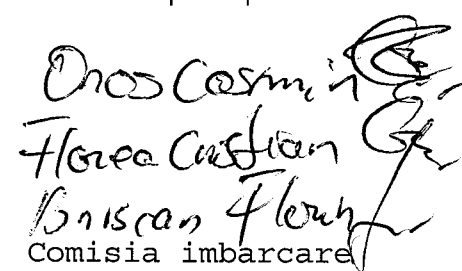 Oros Cosmin
Florea Cristian
Briscan Florin
Comisia imbarcare